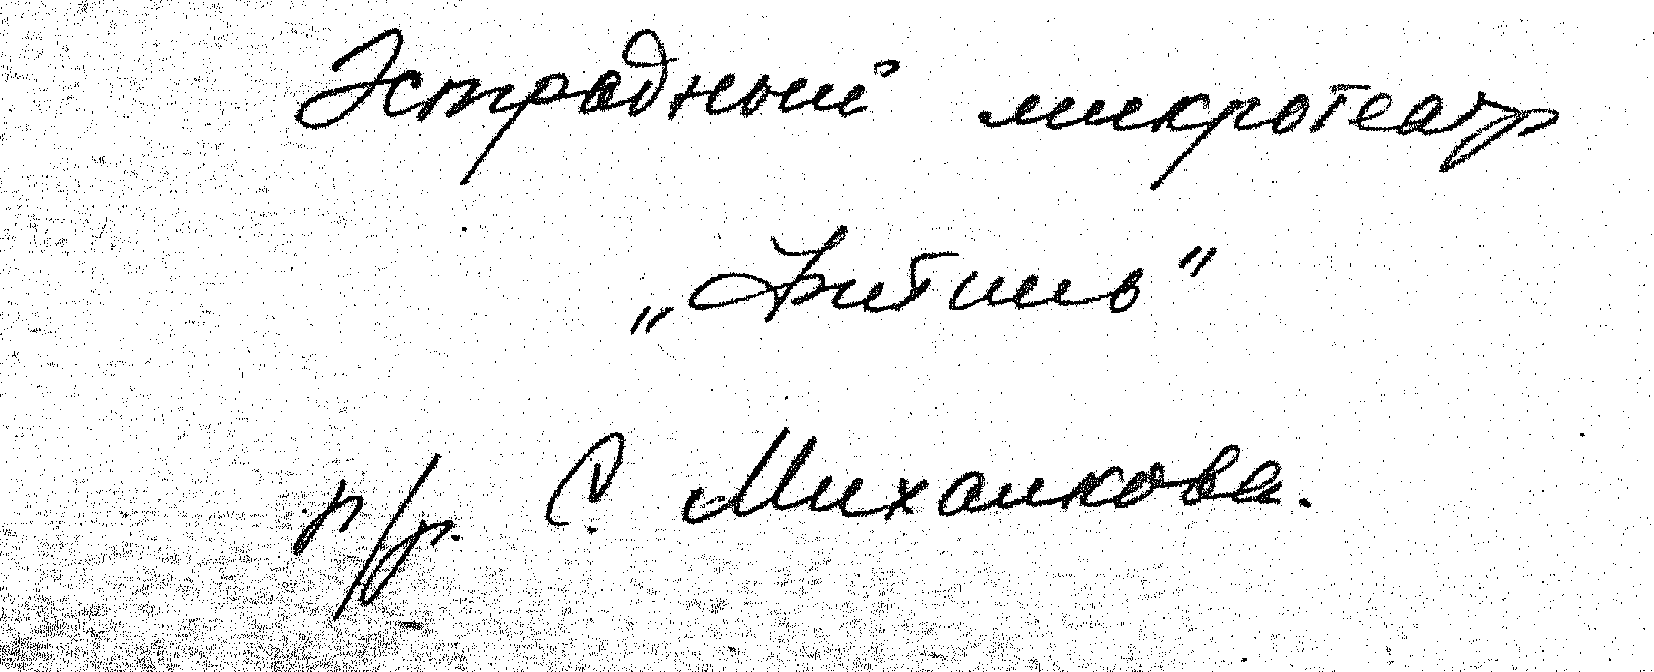 Эстрадный микротеатр
„Фитиль"
р/р. С. Михалкова.